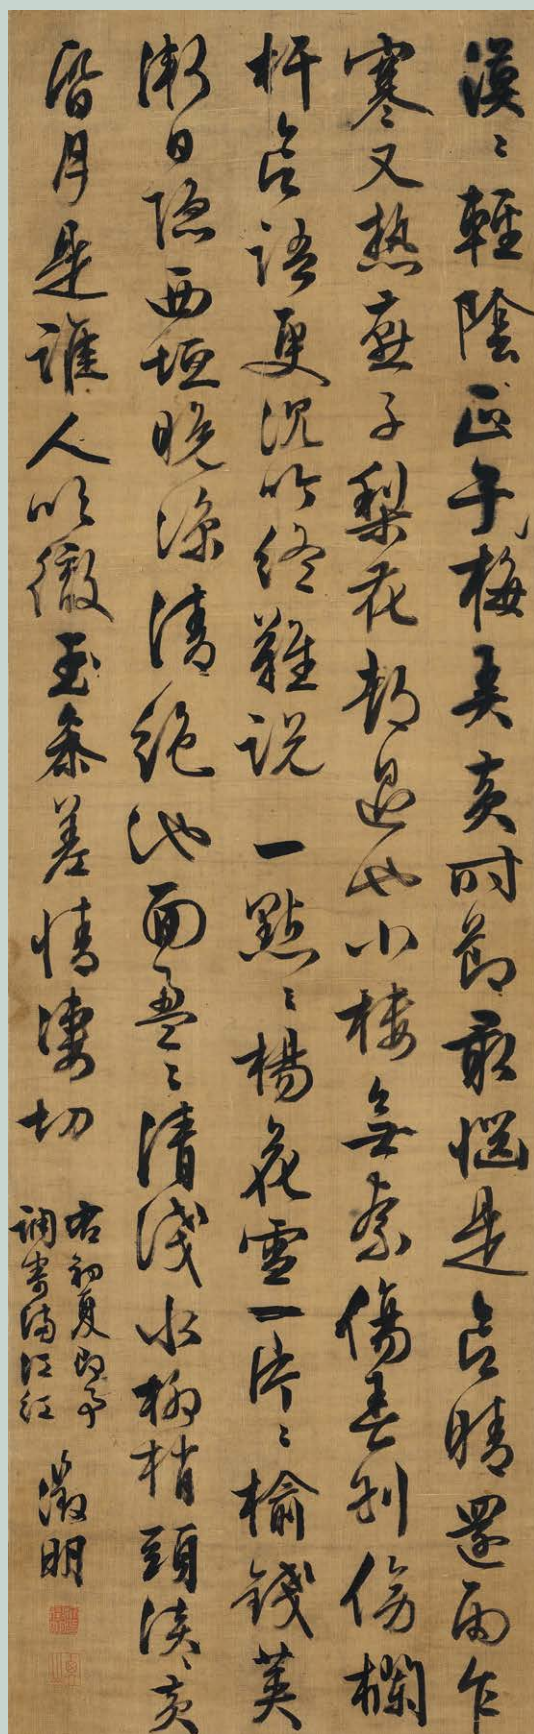 漠〻輕陰正子梅弄黄時節最惱是欲晴還雨乍
寒又熱燕子梨花都過也小樓無奈傷春別傍欄
杆欲語更沉吟終難説一點〻楊花雪一片〻榆錢莢
漸日隱西垣晚涼清絶池面盈〻清淺水柳梢頭淡〻黄
昏月是誰人吹徹玉參差情凄切
右初夏即事
調寄滿江紅
徵明